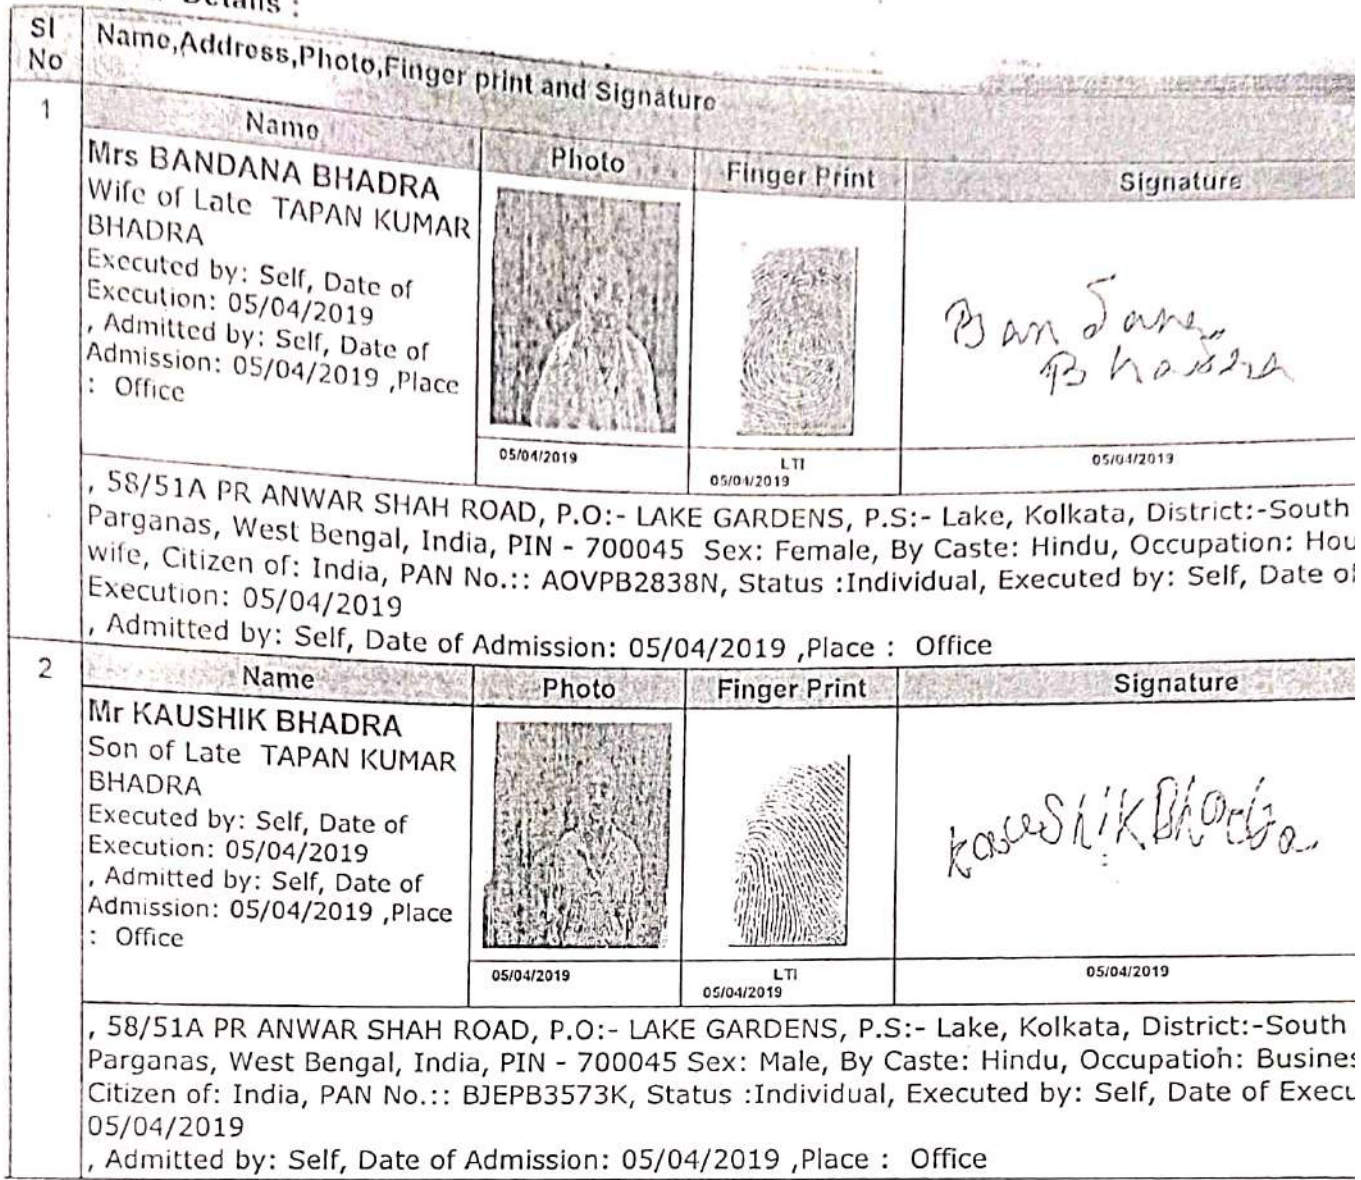 Details :
Sl No
Name,Address,Photo,Finger print and Signature
1
Name
Photo
Finger Print
Signature
Mrs BANDANA BHADRA
Wife of Late TAPAN KUMAR
BHADRA
Executed by: Self, Date of
Execution: 05/04/2019
, Admitted by: Self, Date of
Admission: 05/04/2019 ,Place
: Office
Bandana
Bhadra
05/04/2019
LTI
05/04/2019
05/04/2019
, 58/51A PR ANWAR SHAH ROAD, P.O:- LAKE GARDENS, P.S:- Lake, Kolkata, District:-South
Parganas, West Bengal, India, PIN - 700045 Sex: Female, By Caste: Hindu, Occupation: Hou
wife, Citizen of: India, PAN No.:: AOVPB2838N, Status :Individual, Executed by: Self, Date of
Execution: 05/04/2019
, Admitted by: Self, Date of Admission: 05/04/2019 ,Place : Office
2
Name
Photo
Finger Print
Signature
Mr KAUSHIK BHADRA
Son of Late TAPAN KUMAR
BHADRA
Executed by: Self, Date of
Execution: 05/04/2019
, Admitted by: Self, Date of
Admission: 05/04/2019 ,Place
: Office
Kaushik Bhadra
05/04/2019
LTI
05/04/2019
05/04/2019
, 58/51A PR ANWAR SHAH ROAD, P.O:- LAKE GARDENS, P.S:- Lake, Kolkata, District:-South
Parganas, West Bengal, India, PIN - 700045 Sex: Male, By Caste: Hindu, Occupation: Busines
Citizen of: India, PAN No.:: BJEPB3573K, Status :Individual, Executed by: Self, Date of Execu
05/04/2019
, Admitted by: Self, Date of Admission: 05/04/2019 ,Place : Office